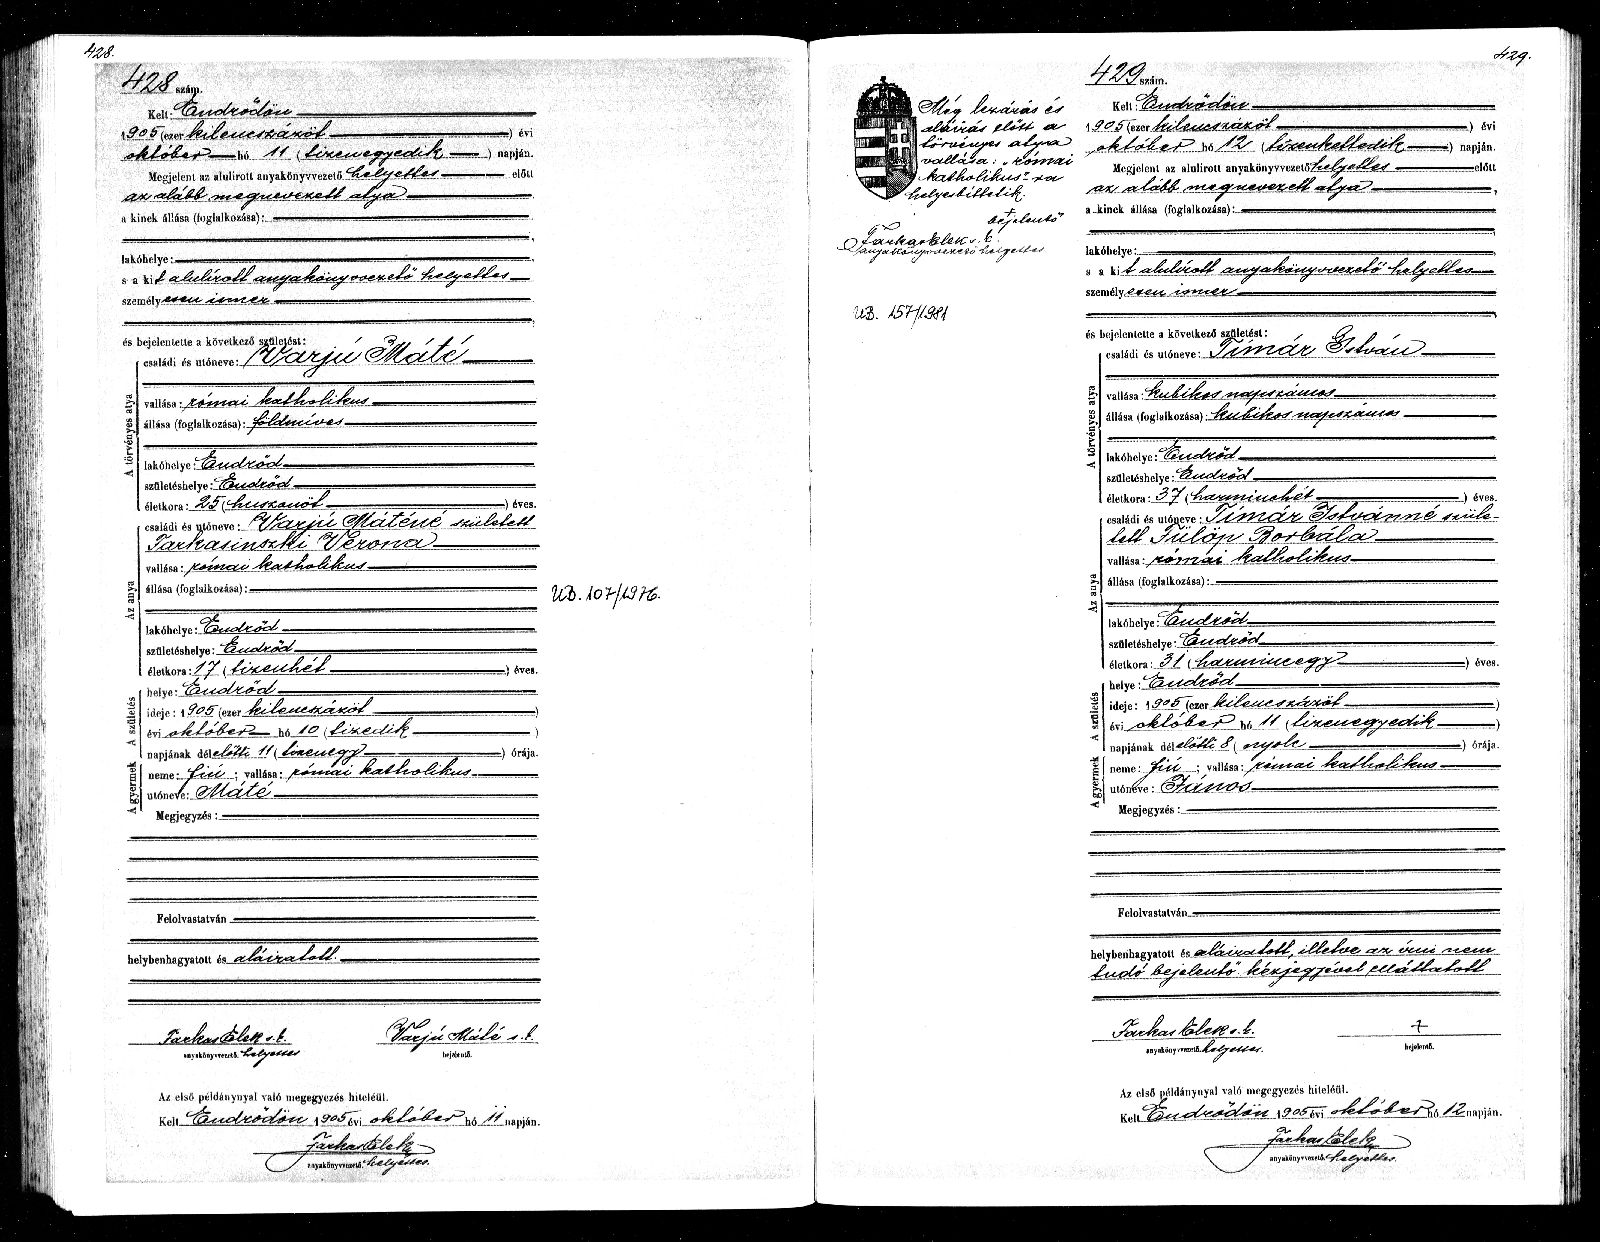 428.
428 szám.
Kelt: Endrődön
1905 (ezer kilenczszázöt ) évi
október hó 11 (tizenegyedik ) napján.
Megjelent az alulirott anyakönyvvezető helyettes előtt
az alább megnevezett atya
a kinek állása (foglalkozása):
lakóhelye:
s a kit alulírott anyakönyvvezető helyettes
személyesen ismer
és bejelentette a következő születést:
A törvényes atya
családi és utóneve: Varjú Máté
vallása: római katholikus
állása (foglalkozása): földmíves
lakóhelye: Endrőd
születéshelye: Endrőd
életkora: 25 (huszonöt ) éves.
Az anya
családi és utóneve: Varjú Máténé született
Farkasinszki Verona
vallása: római katholikus
állása (foglalkozása):
UB. 107/1976.
lakóhelye: Endrőd
születéshelye: Endrőd
életkora: 17 (tizenhét ) éves.
A születés
helye: Endrőd
ideje: 1905 (ezer kilenczszázöt )
évi október hó 10 (tizedik )
napjának délelőtti 11 (tizenegy ) órája.
A gyermek
neme: fiú ; vallása: római katholikus
utóneve: Máté
Megjegyzés:
Felolvastatván
helybenhagyatott és aláiratott.
Farkas Elek s. k. Varjú Máté s. k.
anyakönyvvezető. helyettes bejelentő.
Az első példánynyal való megegyezés hiteléül.
Kelt Endrődön 1905 évi október hó 11 napján.
Farkas Elek
anyakönyvvezető. helyettes.
429.
Még lezárás és
aláírás előtt a
törvényes atya
vallása: "római
katholikus"-ra
helyesbíttetik.
+
bejelentő
Farkas Elek s. k.
anyakönyvvezető helyettes
UB. 157/1981
429 szám.
Kelt: Endrődön
1905 (ezer kilenczszázöt ) évi
október hó 12 (tizenkettedik ) napján.
Megjelent az alulirott anyakönyvvezető helyettes előtt
az alább megnevezett atya ,
a kinek állása (foglalkozása):
lakóhelye:
s a kit alulírott anyakönyvvezető helyettes
személyesen ismer
és bejelentette a következő születést:
A törvényes atya
családi és utóneve: Tímár István
vallása: kubikos napszámos
állása (foglalkozása): kubikos napszámos
lakóhelye: Endrőd
születéshelye: Endrőd
életkora: 37 (harminchét ) éves.
Az anya
családi és utóneve: Tímár Istvánné szüle-
tett Fülöp Borbála
vallása: római katholikus
állása (foglalkozása):
lakóhelye: Endrőd
születéshelye: Endrőd
életkora: 31 (harminczegy ) éves.
A születés
helye: Endrőd
ideje: 1905 (ezer kilenczszázöt )
évi október hó 11 (tizenegyedik )
napjának délelőtti 8 (nyolc ) órája.
A gyermek
neme: fiú ; vallása: római katholikus
utóneve: János
Megjegyzés:
Felolvastatván
helybenhagyatott és aláiratott, illetve az írni nem
tudó bejelentő kézjegyével elláttatott
Farkas Elek s. k. +
anyakönyvvezető. helyettes. bejelentő.
Az első példánynyal való megegyezés hiteléül.
Kelt Endrődön 1905 évi október hó 12 napján.
Farkas Elek
anyakönyvvezető. helyettes.